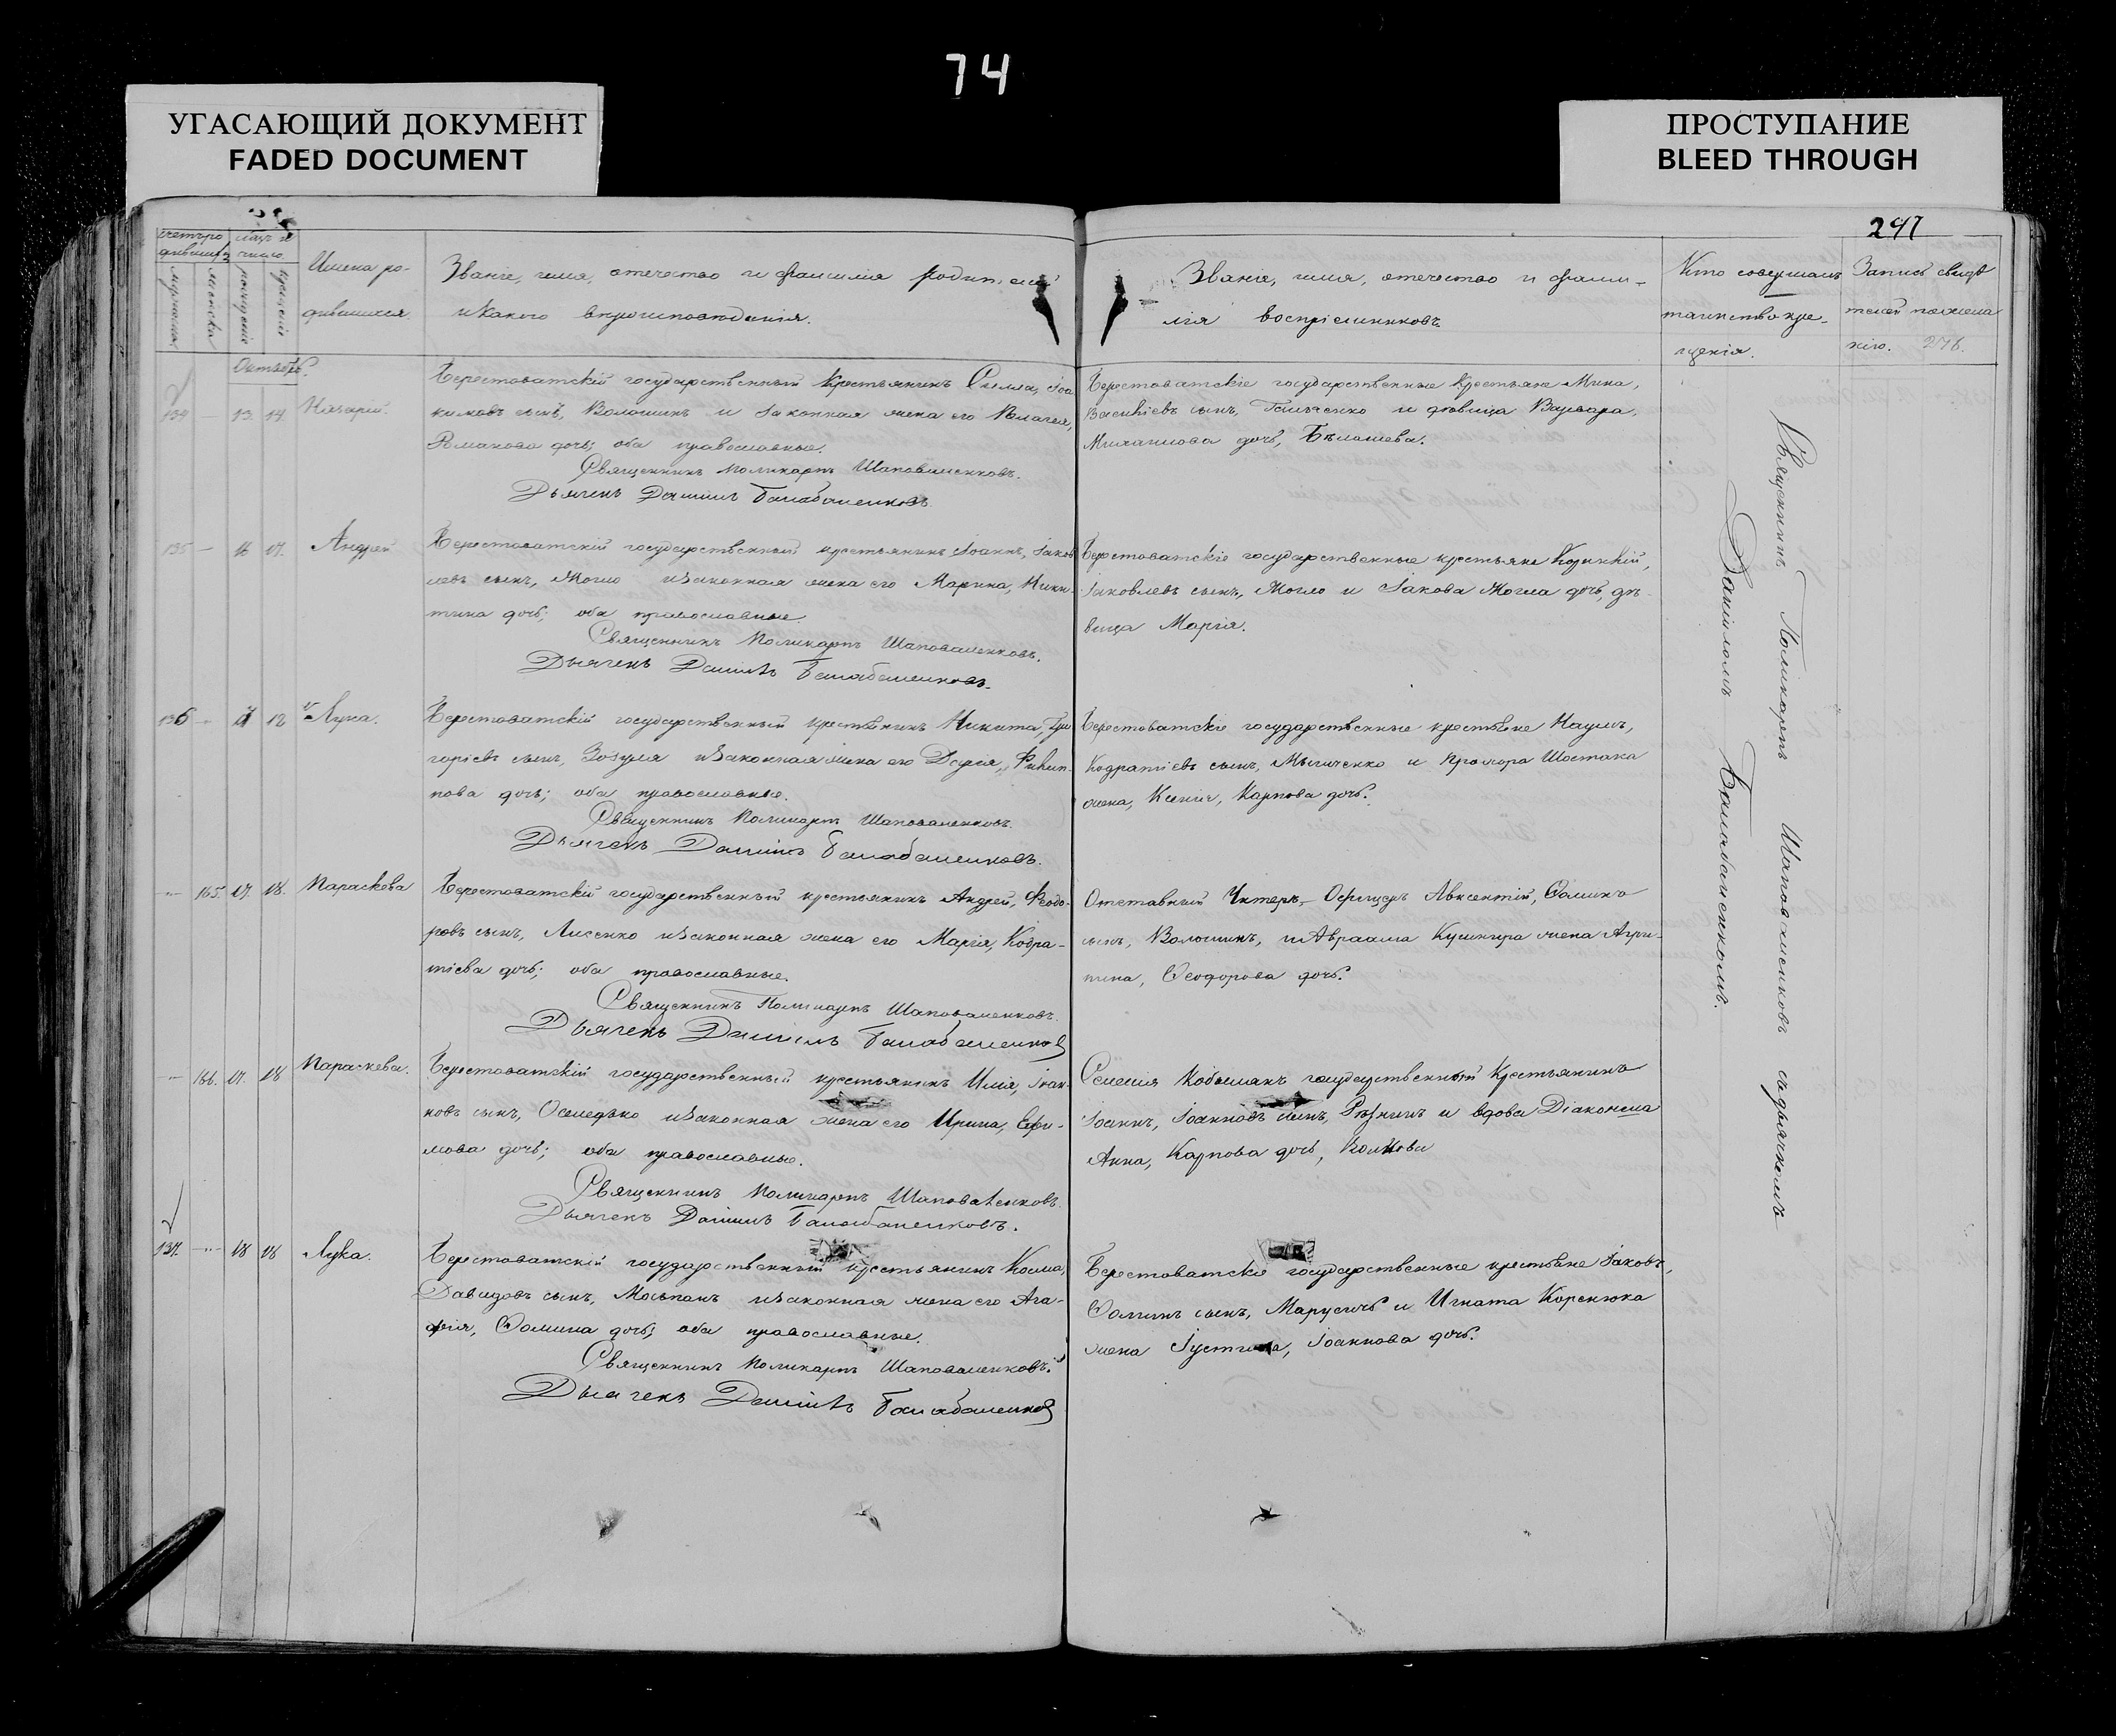 74
УГАСАЮЩИЙ ДОКУМЕНТ
FADED DOCUMENT
ПРОСТУПАНИЕ
BLEED THROUGH
297
Имена ро-
дившихся.
Званіе, имя, отечество и фамилія родителей
и какого вѣроисповѣданія.
Званіе, имя, отечество и фами-
лія воспріемниковъ.
Кто совершалъ
таинство кре-
щенія.
Запись свидѣ
телей по желанію.
Октябрь.
134 13. 14. Назарій.
Берестоватскій государственный крестьянинъ Филипъ, Іоа
кимовъ сынъ, Волошинъ и законная жена его Пелагея,
Романова дочь; оба православные.
Священникъ Поликарпъ Шаповаленковъ.
Дьячекъ Даніилъ Балабаненковъ
Берестоватскіе государственные крестьяне Мина,
Васильевъ сынъ, Ильченко и дѣвица Варвара,
Михаилова дочь, Бѣлошева.
135 — 16 17. Андрей
Берестоватскій государственный крестьянинъ Іоаннъ, Іаков
левъ сынъ, Могло и законная жена его Марина, Ники-
тина дочь; оба православные.
Священникъ Поликарпъ Шаповаленковъ.
Дьячекъ Даніилъ Балабаненковъ.
Берестоватскіе государственные крестьяне Корнилій,
Іаковлевъ сынъ, Могло и Іакова Могла дочь, дѣ-
вица Марія.
136 17 18 Лука.
Берестоватскій государственный крестьянинъ Никита, Гри
горіевъ сынъ, Зозуля и законная жена его Дарія, Филип-
пова дочь; оба православные.
Священникъ Поликарпъ Шаповаленковъ.
Дьячекъ Даніилъ Балабаненковъ.
Берестоватскіе государственные крестьяне Наумъ,
Кодратіевъ сынъ, Мышченко и Прохора Шостака
жена, Ксенія, Карпова дочь.
165. 17. 18. Параскева
Берестоватскій государственный крестьянинъ Андрей, Феодо-
ровъ сынъ, Лисенко и законная жена его Марія, Кодра-
тіева дочь; оба православные.
Священникъ Поликарпъ Шаповаленковъ.
Дьячекъ Даніилъ Балабаненковъ
Отставный Унтеръ-Офицеръ Авксентій, Ѳоминъ
сынъ, Волошинъ, и Авраама Кушнира жена Агри-
пина, Ѳеодорова дочь.
166. 17. 18 Параскева.
Берестоватскій государственный крестьянинъ Илія, Іоан-
новъ сынъ, Оселедько и законная жена его Ирина, Ефи-
мова дочь; оба православные.
Священникъ Поликарпъ Шаповаленковъ
Дьячекъ Даніилъ Балабаненковъ.
Селенія государственный крестьянинъ
Іоаннъ, Іоанновъ сынъ, Рѣзникъ и вдова Діаконска
Анна, Карпова дочь, Волкова
137. 18 18 Лука.
Берестоватскій государственный крестьянинъ Косма,
Давидовъ сынъ, Мосьпанъ и законная жена его Ага-
фія, Ѳомина дочь; оба православные.
Священникъ Поликарпъ Шаповаленковъ.
Дьячекъ Даніилъ Балабаненковъ
Берестоватскіе государственные крестьяне Іаковъ,
Ѳоминъ сынъ, Марусичъ и Игната Коренюка
жена Іустина, Іоаннова дочь.
Священникъ Поликарпъ Шаповаленковъ съ дьячкомъ
Даніиломъ Балабаненкомъ.